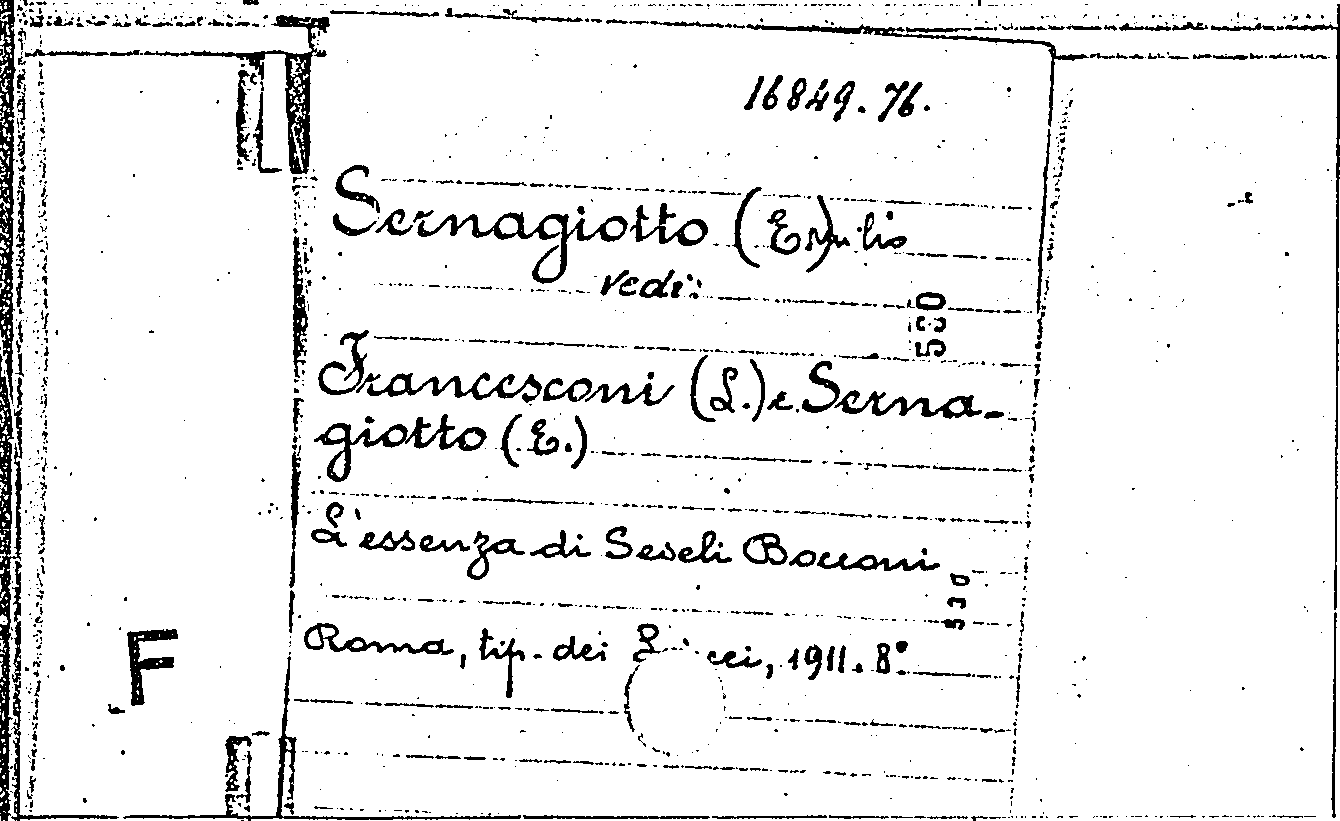 16849.76.
Sernagiotto (E.)milio
vedi:
530
Francesconi (L.) e Serna-
giotto (E.)
L'essenza di Seseli Bocconi
530
Roma, tip. dei 1911. 8°
F